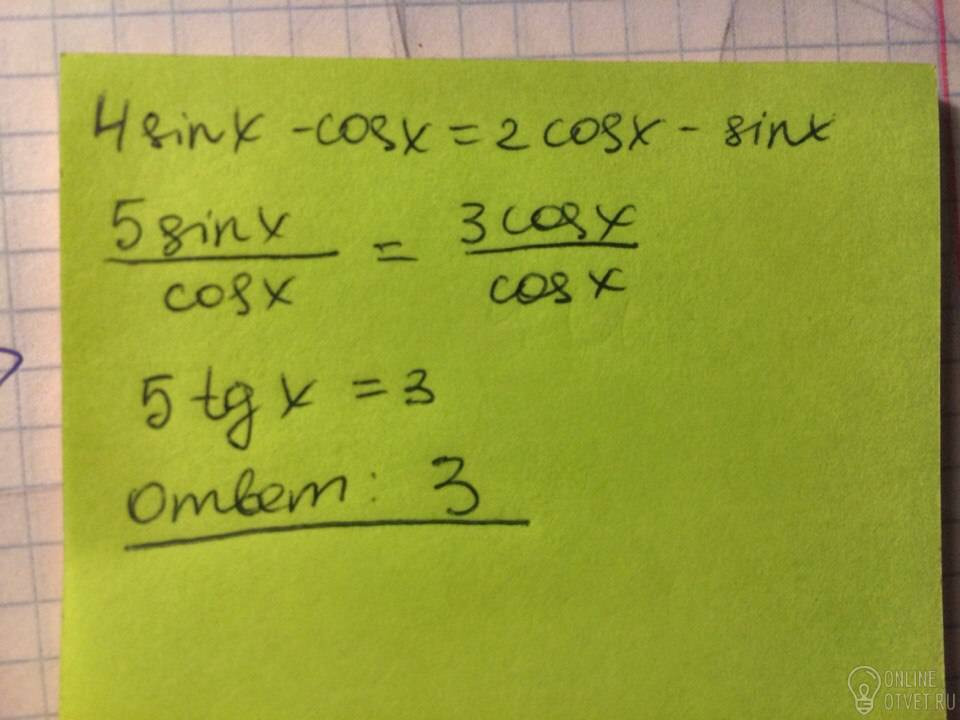 4 sinx - cosx = 2 cosx - sinx
5 sinx / cosx = 3 cosx / cosx
5 tg x = 3
ответ: 3
ONLINE
OTVET.RU